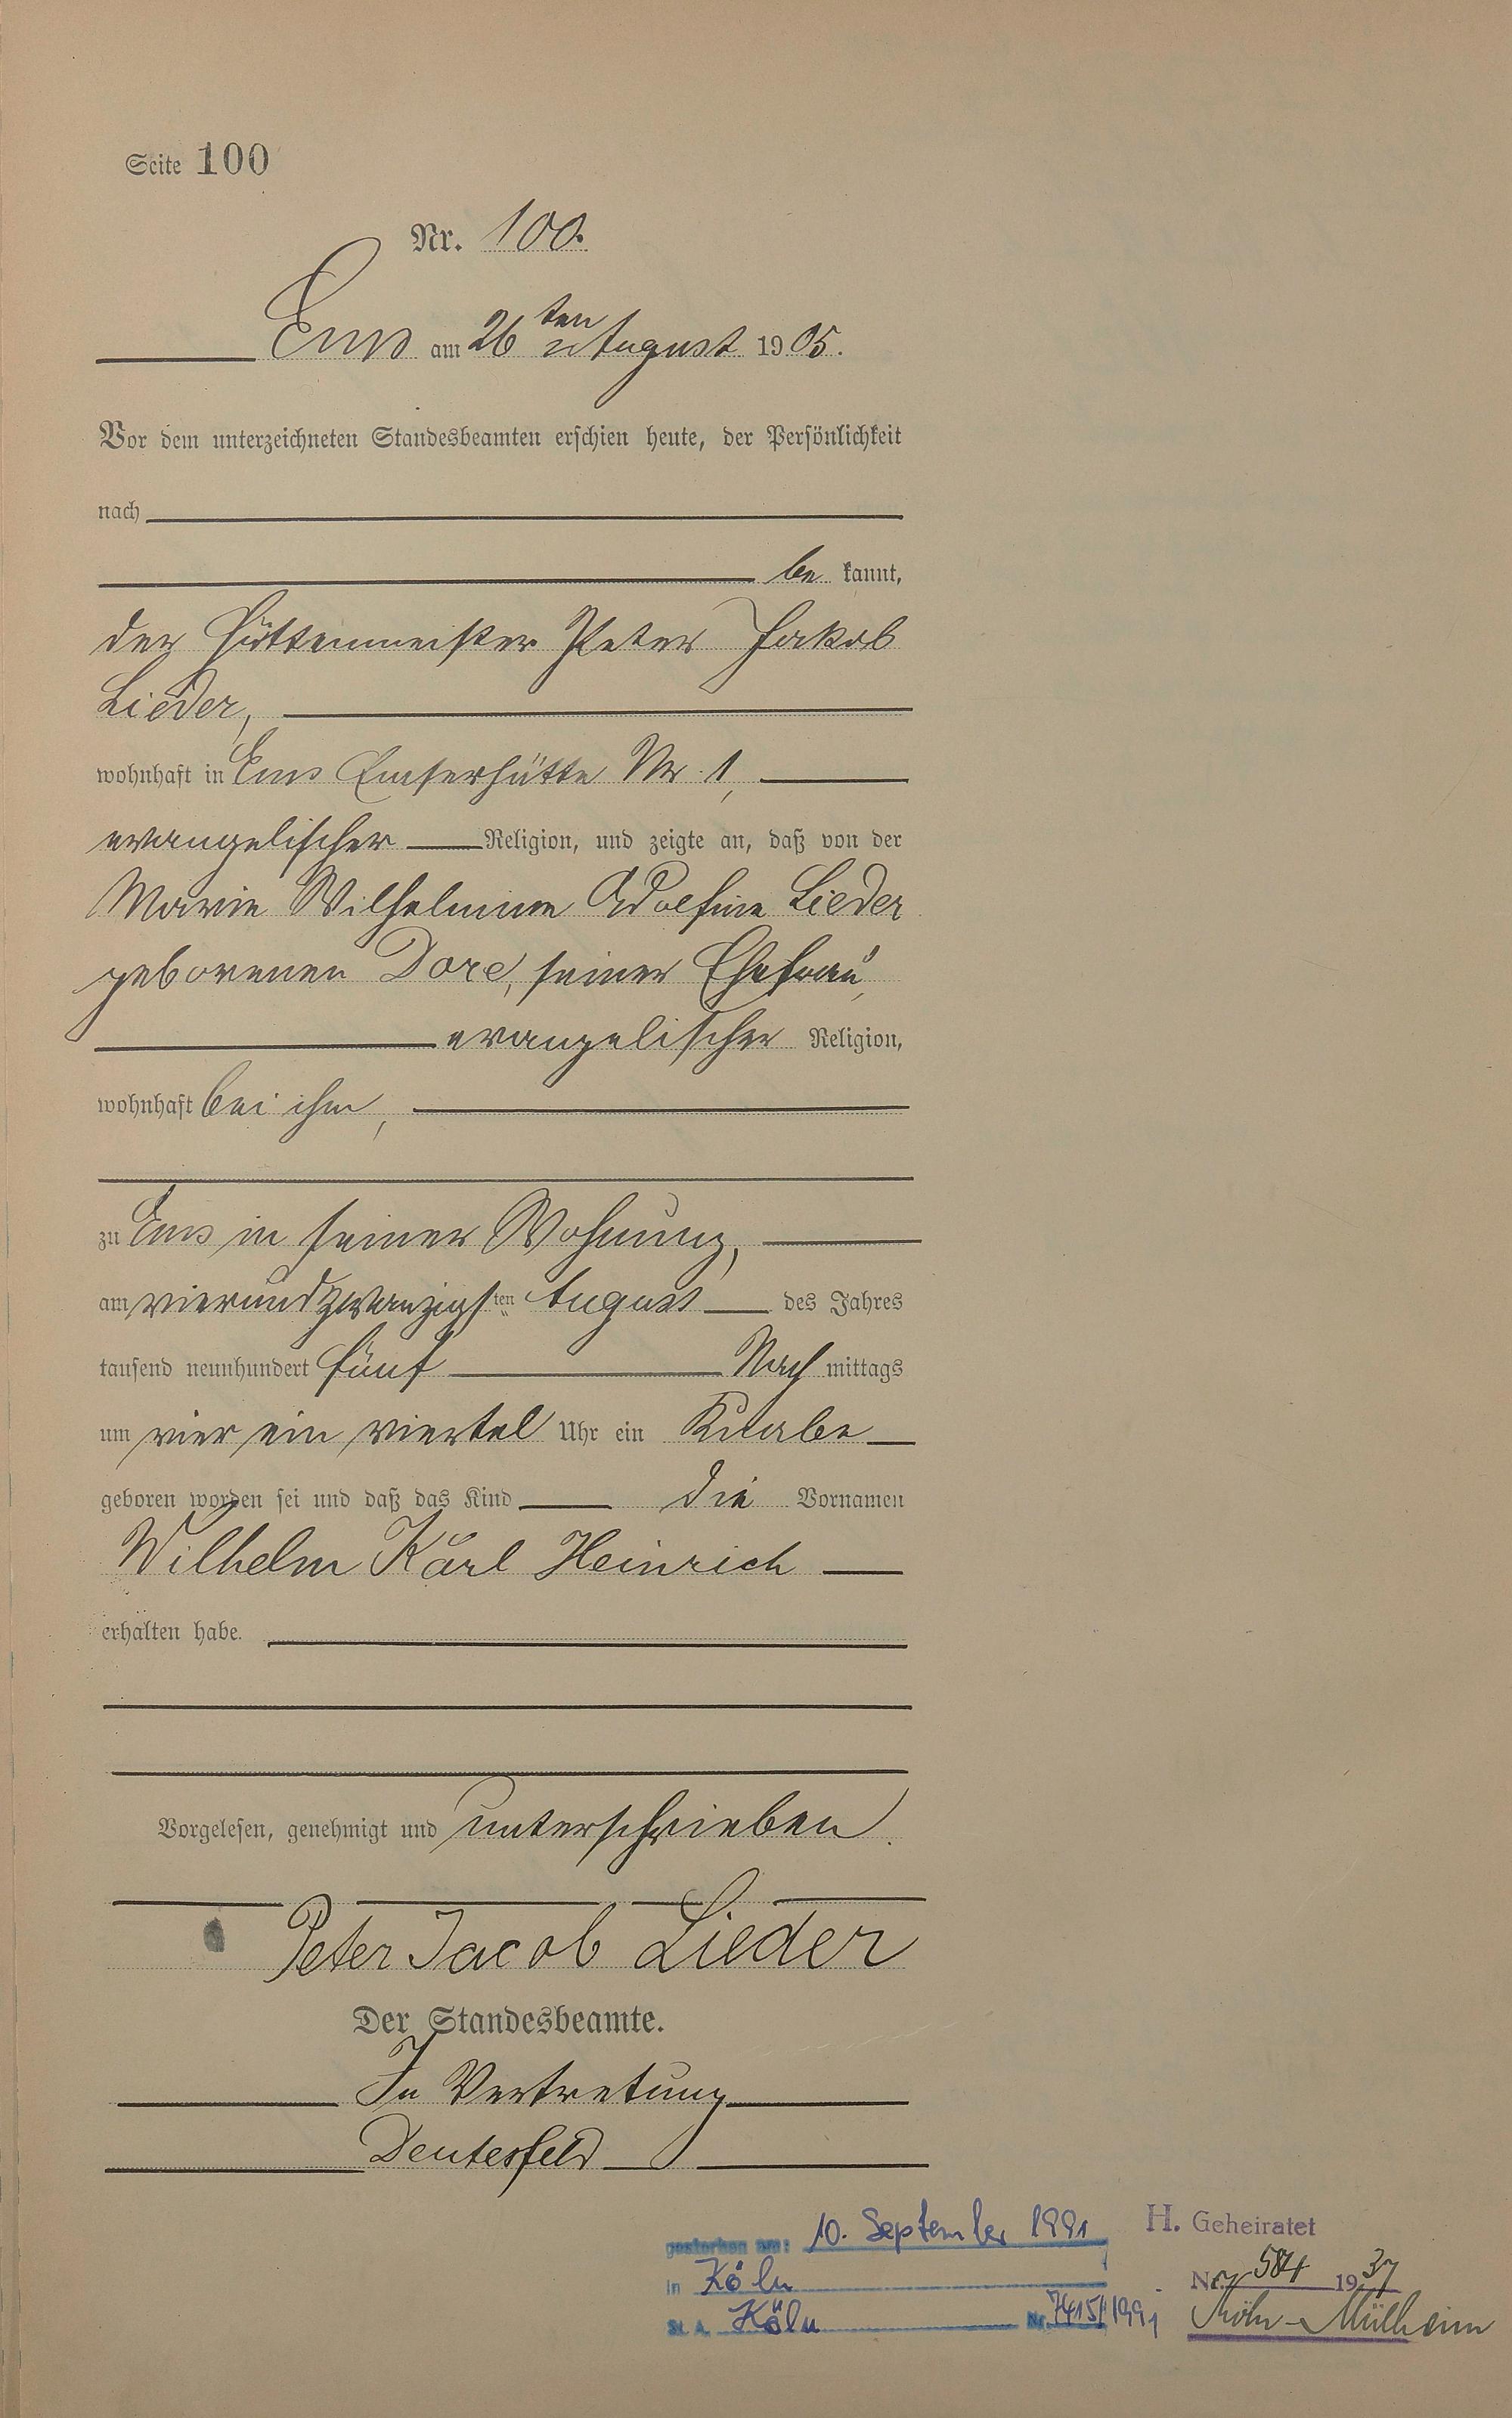 Seite 100
Nr. 100.
Ems am 26ten August 1905.
Vor dem unterzeichneten Standesbeamten erschien heute, der Persönlichkeit
nach
be kannt,
der Hüttenmeister Peter Jakob
Lieder,
wohnhaft in Ems Emserhütte Nr. 1,
evangelischer Religion, und zeigte an, daß von der
Marie Wilhelmine Adolfine Lieder
geborenen Dore, seiner Ehefrau,
evangelischer Religion,
wohnhaft bei ihm,
zu Ems in seiner Wohnung,
am vierundzwanzigsten August des Jahres
tausend neunhundert fünf Nach mittags
um vier ein viertel Uhr ein Knabe
geboren worden sei und daß das Kind die Vornamen
Wilhelm Karl Heinrich
erhalten habe.
Vorgelesen, genehmigt und unterschrieben.
Peter Jacob Lieder
Der Standesbeamte.
In Vertretung
Deutesfeld
gestorben am: 10. September 1991
in Köln
St. A. Köln Nr. 7415/1991
H. Geheiratet
Nr. 584 1937
Köln-Mülheim